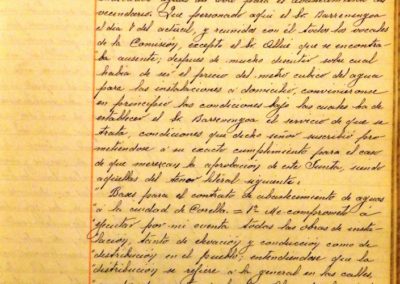 vecindario. Que personado aquí el Sr. Barrenengoa
el día 1 del actual, y reunidos con él todos los vocales
de la Comisión, excepto el Sr. Allué que se encontra
ba ausente; despues de mucho discutir sobre cual
había de ser el precio del metro cubico del agua
para las instalaciones á domicilio, convinieronse
en principio las condiciones bajo las cuales ha de
establecer el Sr. Barrenengoa el servicio de que se
trata, condiciones que dicho señor suscribió pro
metiendose á su exacto cumplimiento para el caso
de que merezcan la aprobacion de esta Junta, siendo
aquellas del tenor literal siguiente.
"Bases para el contrato de abastecimiento de aguas
"á la ciudad de Corella. = 1ª Me comprometo á
"ejecutar por mi cuenta todas las obras de insta
"lacion, tanto de elevacion y conduccion como de
"distribucion en el pueblo; entendiendose que la
"distribucion se refiere á la general en las calles